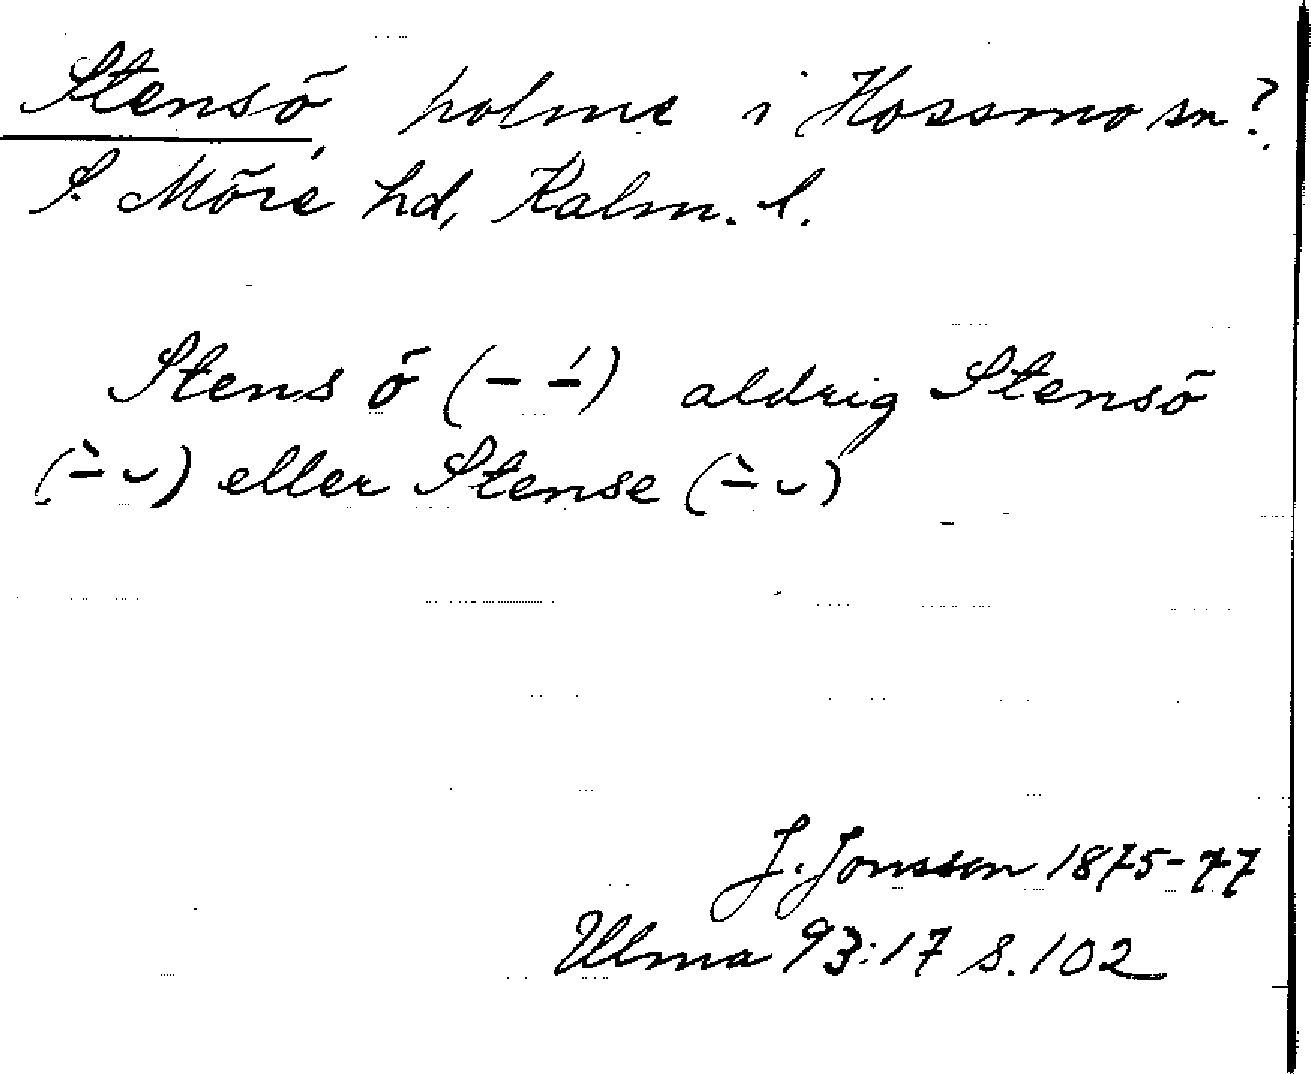 Stensö, holme i Hossmo sn?
S. Möre hd, Kalm. l.
Stens ö (– –́) aldrig Stensö
(–̀ ⏑) eller Stense (–̀ ⏑)
J. Jonsson 1875-77
Ulma 93:17 s. 102